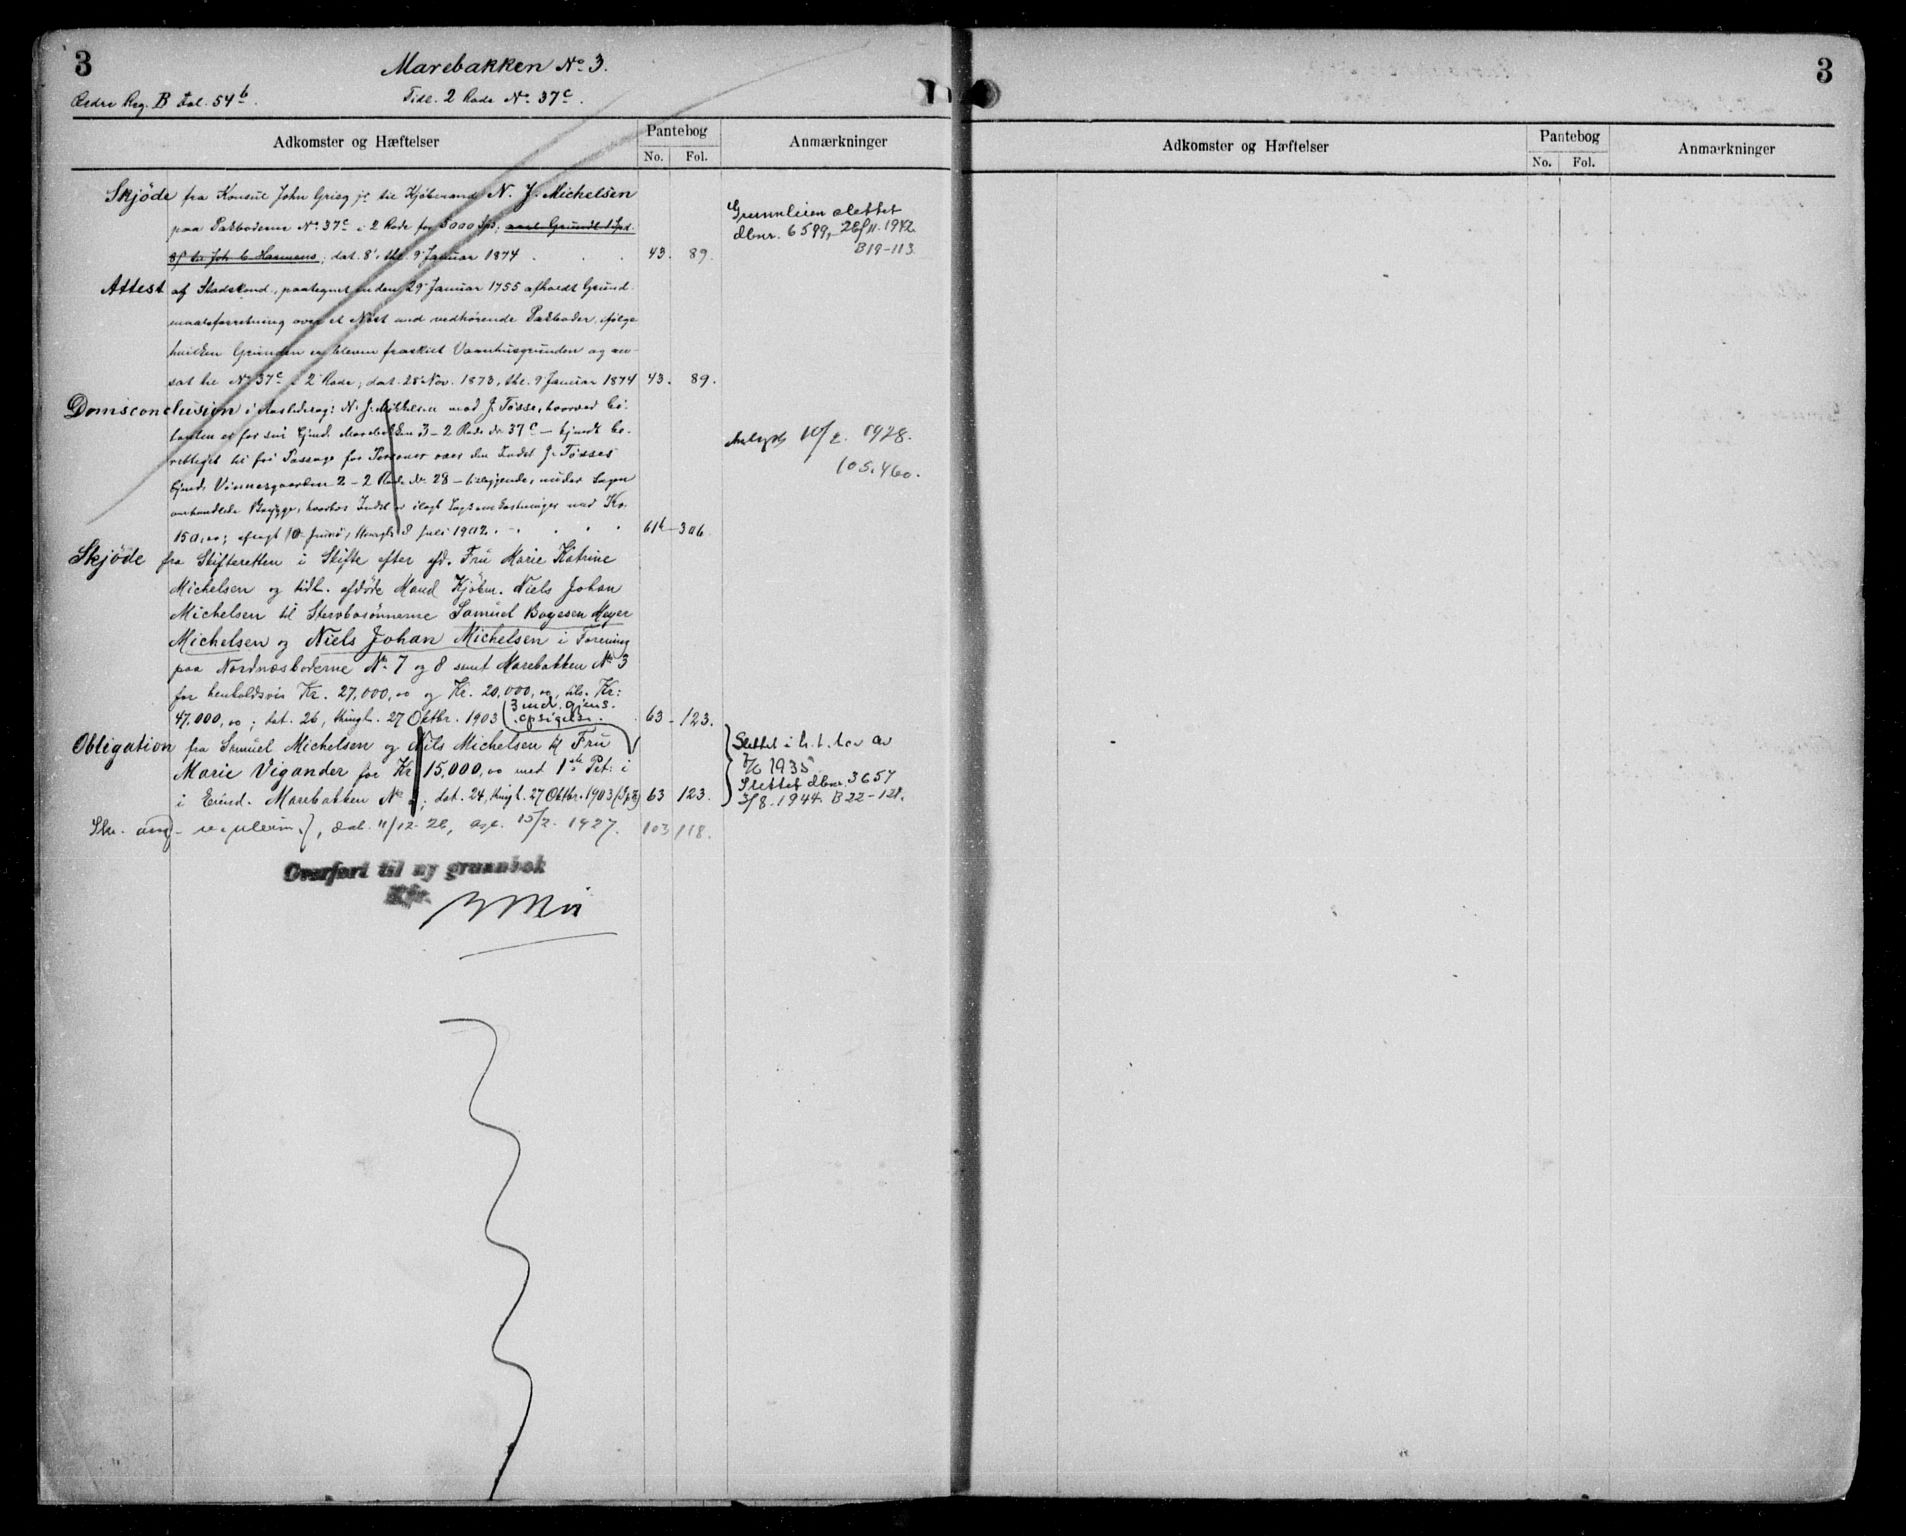 3
Marebakken No 3.
Ældre Reg. B Fol. 54b.
Tidl. 2 Rode No 37c.
Adkomster og Hæftelser
Pantebog
No. Fol.
Anmærkninger
Skjøde fra Konsul John Grieg jr til Kjøbmand N. J. Michelsen
paa Pakboderne No 37c i 2 Rode for 5000 Spd.
dat. 8', thl. 9' Januar 1874 . . . 43. 89.
Grunnleien slettet
dbnr. 6599, 28/11.1942
B19-113
Attest af Stadskond., paategnet en den 29' Januar 1755 afholdt Grund-
maalsforretning over et Nøst med vedhørende Pakboder, ifølge
hvilken Grunden er bleven fraskilt Vaanhusgrunden og an-
sat til No 37c i 2' Rode, dat. 28' Nov. 1873, thl. 9' Januar 1874 43. 89.
Domsconclusion i Aastedssag: N. J. Mikkelsen mod J. Tøsse, hvorved Ci-
tanten er for sin Ejend. Marebakken 3 - 2 Rode Nr 37c - kjendt be-
rettiget til fri Passage for Personer over den Indst. J. Tøsses
Ejend. Vønnesgaarden 2 - 2 Rode Nr. 28 - tilliggende, under Sagen
omhandlede Brygge, hvorhos Indst. er ilagt Sagsomkostninger med Kr.
150,00; afsagt 10 Juni, thingl. 8 Juli 1902. . . . 61b - 306.
Avlyst 10/2. 1928.
105.460.
Skjøde fra Skifteretten i Skifte efter afd. Fru Marie Katrine
Michelsen og tidl. afdøde Mand Kjøbm. Niels Johan
Michelsen til Stervbosønnerne Samuel Bagesen Meyer
Michelsen og Niels Johan Michelsen i Forening
paa Nordnæsboderne No 7 og 8 samt Marebakken No 3
for henholdsvis Kr. 27,000,00 og Kr. 20,000,00, tils. Kr:
47.000,00; dat. 26, thingl. 27 Oktbr. 1903 . 63 - 123.
3 md. gjens.
opsigelse.
Obligation fra Samuel Michelsen og Nils Michelsen til Fru
Marie Vigander for Kr 15,000,00 med 1ste Prt. i
i Eiend. Marebakken No 3; dat. 24, thingl. 27 Oktbr. 1903 63 123.
Slettet i h. t. lov av
7/6 1935
Slettet dbnr. 3657
3/8. 1944. B 22 - 121.
Skr. ang. regulerin., dat. 11/12. 26, agl. 15/2. 1927. 103 118.
Overført til ny grunnbok
Kfr.
3
Adkomster og Hæftelser
Pantebog
No. Fol.
Anmærkninger